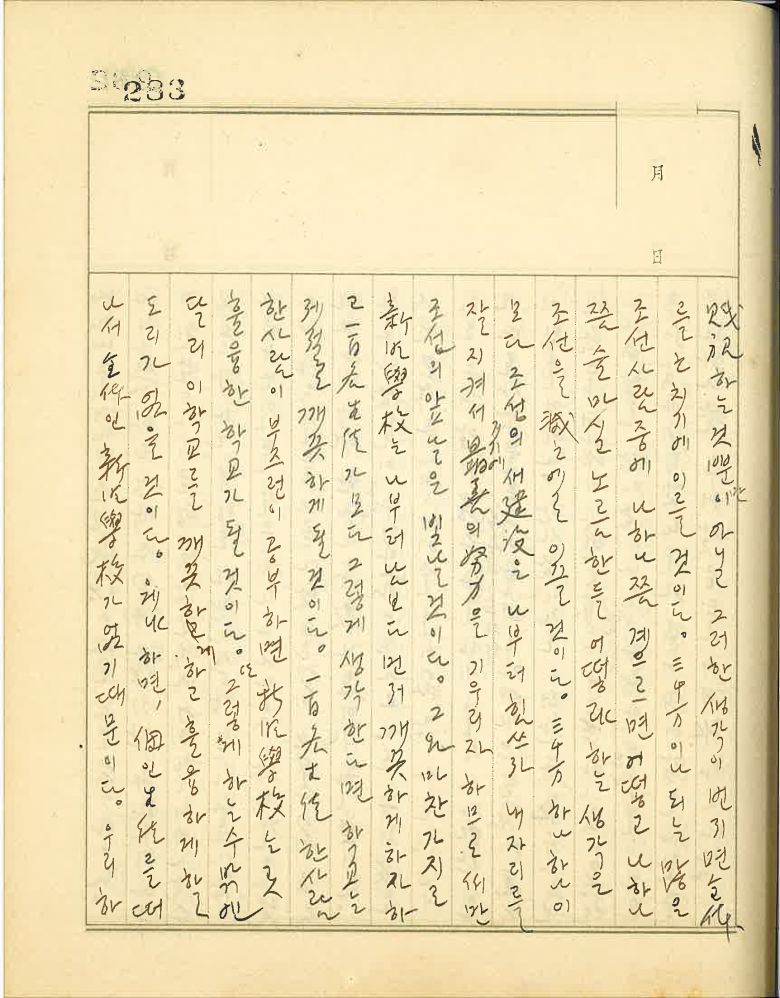 283
月
日
賤視하는 것뿐만이 아닐 그러한 생각이 번지면 全体
를 이를 것이다。三千万이나 되는 많은
조선사람중에 나하나쯤 게으르면 어떻고 나하나
쯤 술마실 노름한들 어떻랴 하는 생각은
조선을 滅亡에로 이끌 것이다。三千万 하나하나이
모다 조선의 새建設은 나부터 힘쓰라 내자리를
잘 지켜서 거기에 最善의 努力을 기우리자 하므로써만
조선의 앞날은 빛날것이다。그와 마찬가지로
新明學校는 나부터 남보다 먼저 깨끗하게하자 하
고 一百名 生徒가 모다 그렇게 생각한다면 학교는
저절로 깨끗하게될 것이다。一百名生徒 한사람
한사람이 부즈런이 공부하면 新明學校는 곳
훌융한 학교가 될 것이다。또 그렇게 하는수밖엔
달리 이학교를 깨끗하게 하고 훌융하게 할
도리가 없을 것이다。웨냐하면, 個人生徒를 떠
나서 全体인 新明學校가 없기때문이다。우리 하